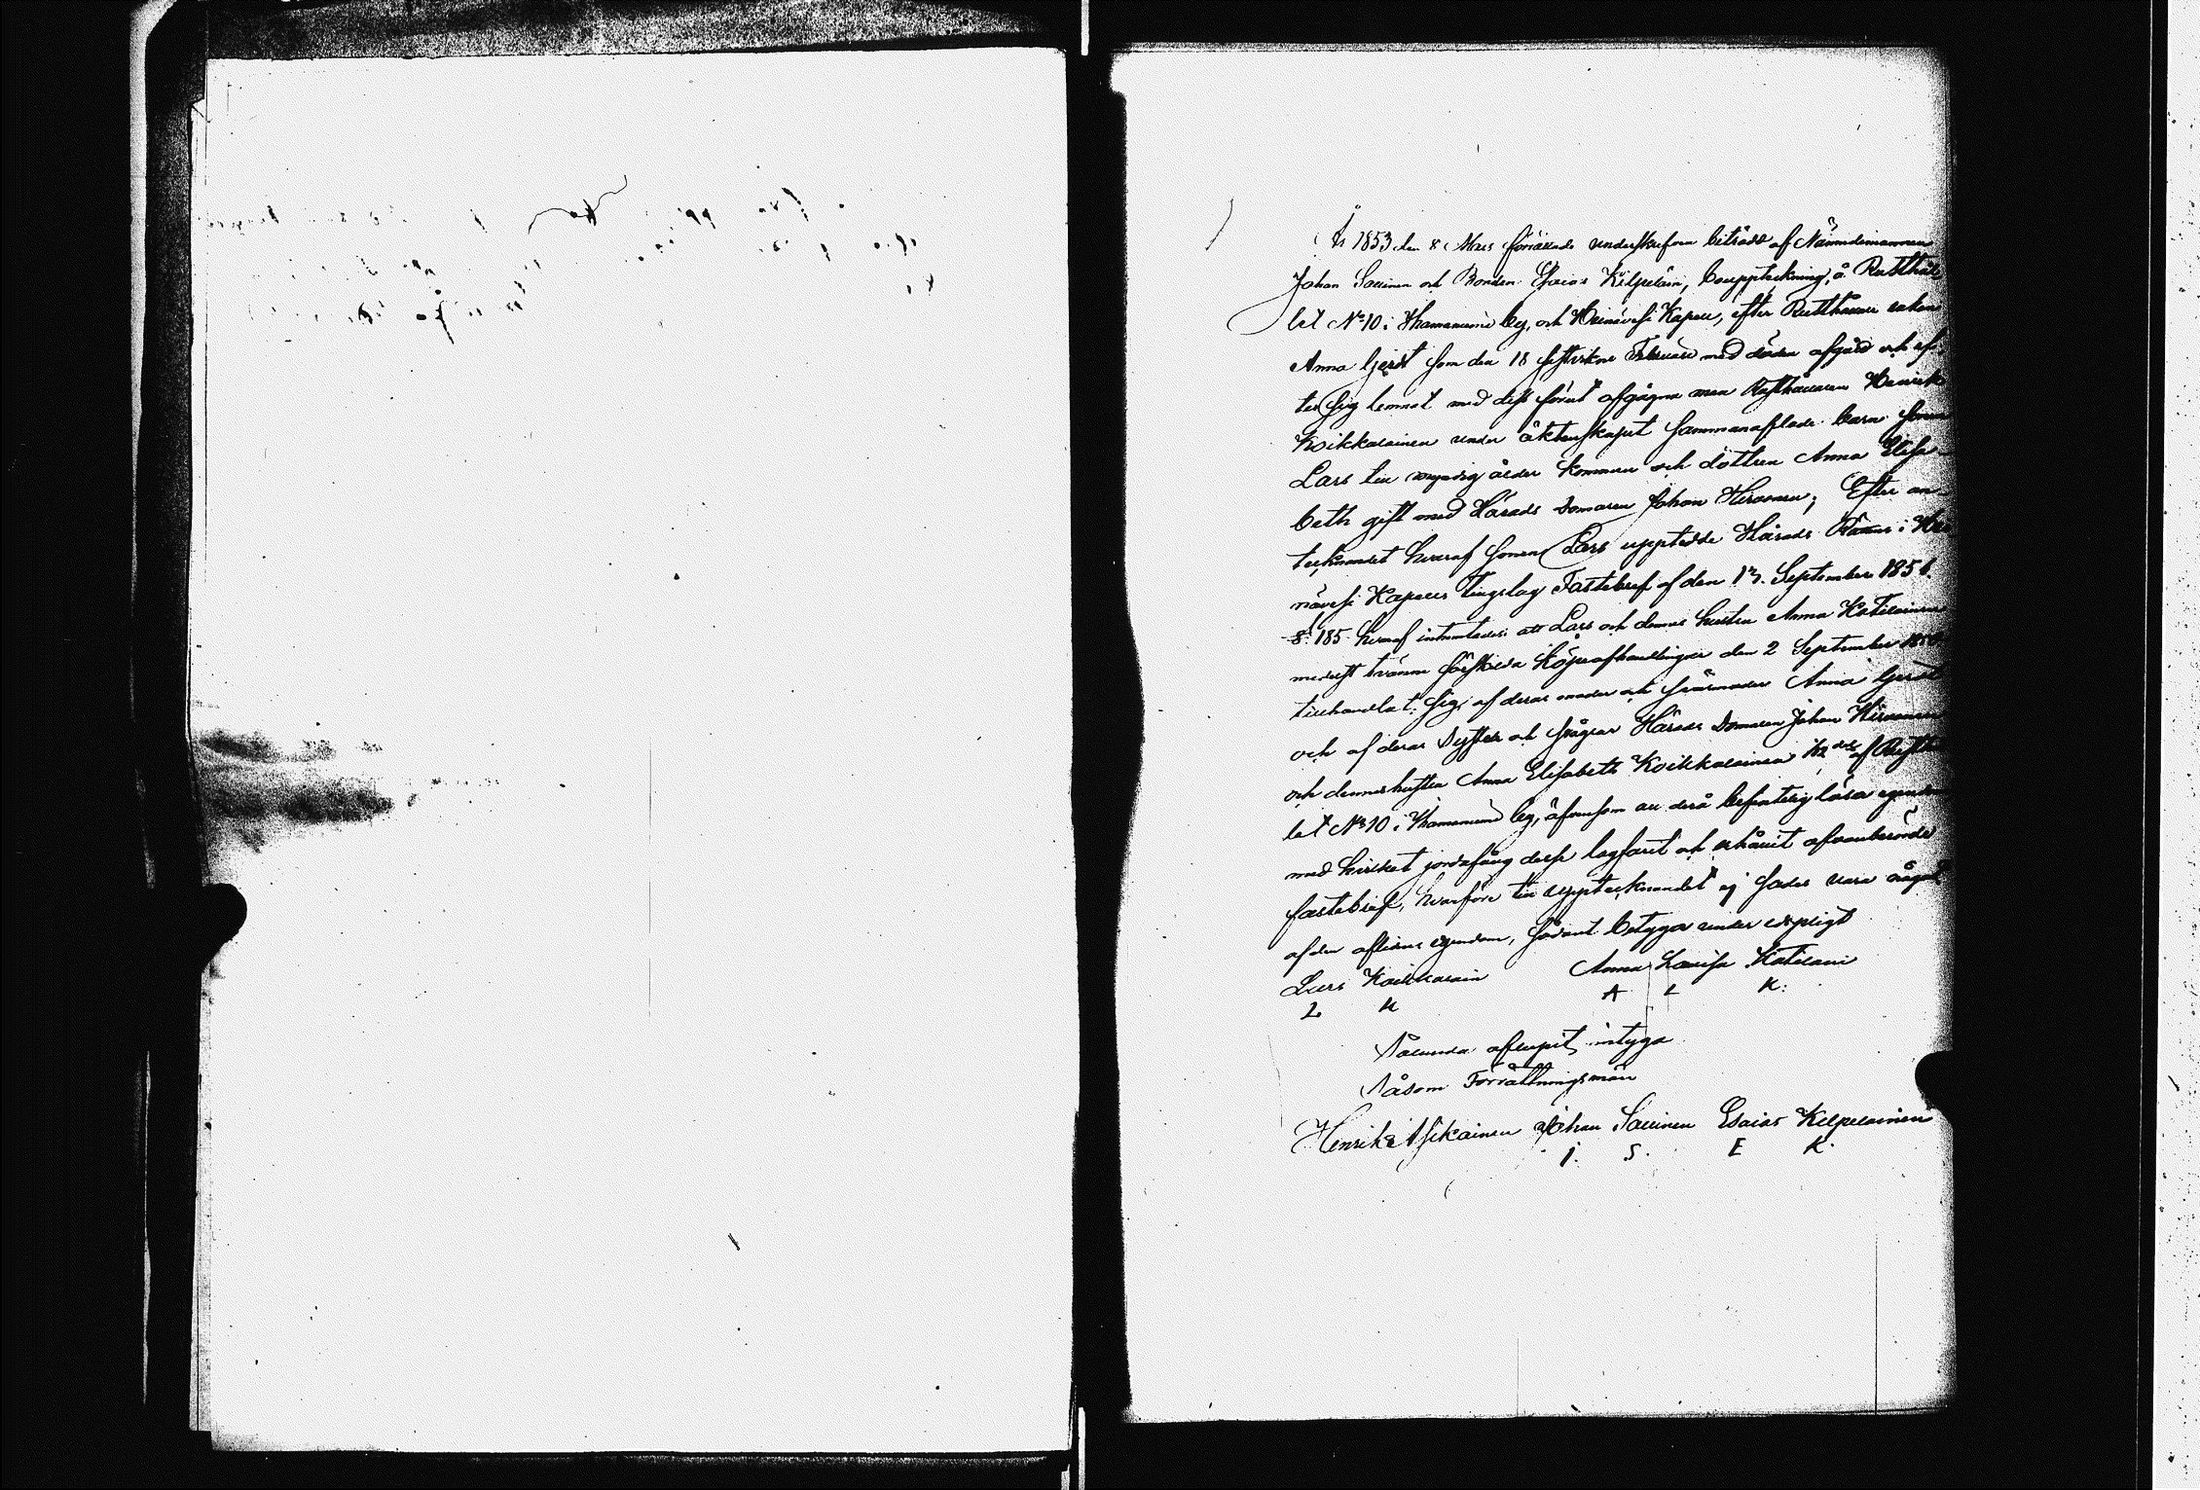 År 1853 den 8 Mars förrättade underskrifven biträdd af Nämndemannen
Johan Sallinen och Bonden Esaias Kilpeläin, bouppteckning, å Rusthål
let No 10 i Ihamaniemi by, och Heinävesi Kapell, efter Rusthållare enkan
Anna Gerdt som den 18 sistvikne Februari med döden afgått och ef-
ter sig lemnat med dess förut afgågna man Rusthållaren Henrik
Koikkalainen under äktenskapet sammanaflade barn sonen
Lars till myndig ålder kommen och dottren Anna Elisa-
beth gift med Härads Domaren Johan Hirvonen; Efter an-
tecknandet hvaraf sonen Lars uppteedde Härads Rättens i Hei
nävesi Kapells Tingslag Fastebref af den 17. September 1851.
§. 185 hvaraf inhemtades att Lars och dennes hustru Anna Katilainen
medelst tvänne särskilda köpeafhandlingar den 2 September 1850
tillhandlat sig af deras moder och svärmoder Anna Gerdt
och af deras Syster och svåger Härads Domaren Johan Hirvonen
och dennes hustru Anna Elisabeth Koikkalainen 1/2 del af Rusthål
let No 10 i Ihamaniemi by, äfvensom all derå befintelig lösa egendom
med hvilket jordafång desse lagfarit och erhållit ofvanberörde
fastebref, hvarföre till upptecknandet ej fades vara något
af den aflidnes egendom, sådant betygar under edspligt
Lars Koikkalain Anna Lovisa Katilain
L K A L K.
Sålunda aflupit, intyga
Såsom Förrättningsmän
Henrik Asikainen Johan Sallinen Esaias Kilpelainen
J. S. E K.